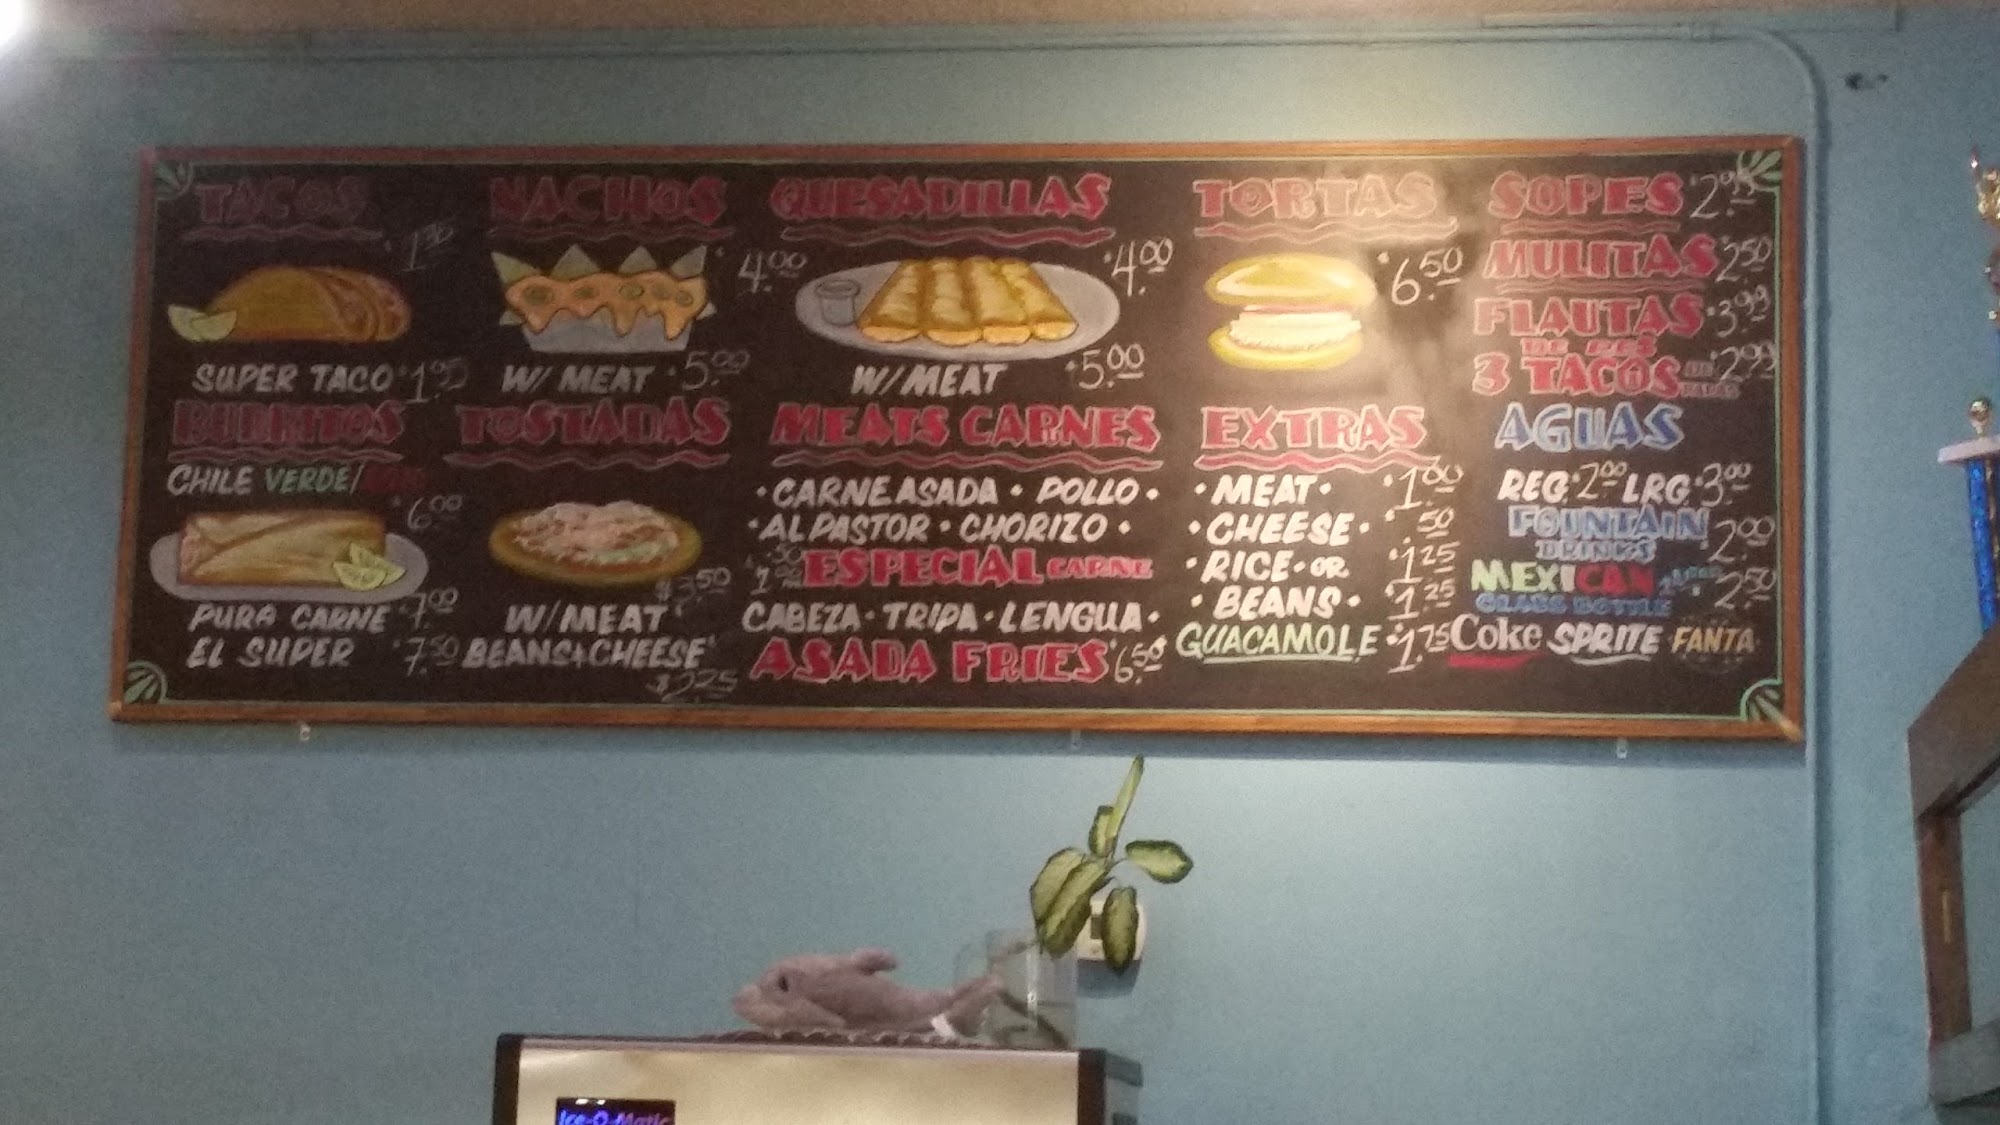 TACOS
SUPER TACO $1.95
NACHOS
$4.00
W/ MEAT $5.00
QUESADILLAS
$4.00
W/MEAT $5.00
TORTAS
$6.50
SOPES $2.95
MULITAS $2.50
FLAUTAS $3.99
3 TACOS $2.99
BURRITOS
CHILE VERDE/
$6.00
PURA CARNE $7.00
EL SUPER $7.50
TOSTADAS
W/MEAT $3.50
BEANS+CHEESE
$2.25
MEATS CARNES
• CARNE ASADA • POLLO •
• AL PASTOR • CHORIZO •
ESPECIAL CARNE
CABEZA • TRIPA • LENGUA •
ASADA FRIES $6.50
EXTRAS
• MEAT • $1.00
• CHEESE • .50
• RICE • OR $1.25
• BEANS • $1.25
GUACAMOLE $1.75
AGUAS
REG. $2.00 LRG. $3.00
FOUNTAIN
DRINKS $2.00
MEXICAN
GLASS BOTTLE $2.50
Coke SPRITE FANTA
Ice-O-Matic